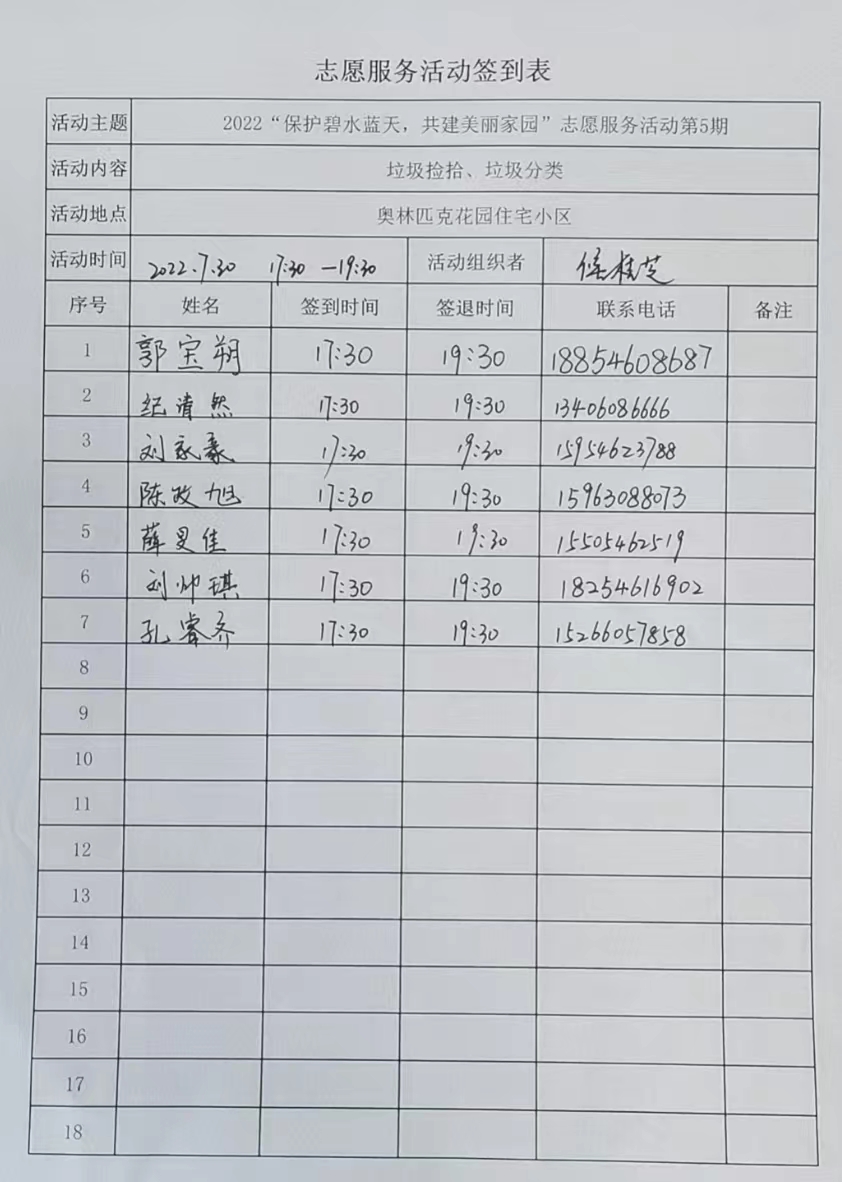 志愿服务活动签到表
活动主题 2022“保护碧水蓝天，共建美丽家园”志愿服务活动第5期
活动内容 垃圾捡拾、垃圾分类
活动地点 奥林匹克花园住宅小区
活动时间 2022.7.30 17:30—19:30 活动组织者 侯桂芝
序号 姓名 签到时间 签退时间 联系电话 备注
1 郭宝朔 17:30 19:30 18854608687
2 纪清然 17:30 19:30 13406086666
3 刘家豪 17:30 19:30 15954623788
4 陈政旭 17:30 19:30 15963088073
5 薛旻佳 17:30 19:30 15505462519
6 刘帅琪 17:30 19:30 18254616902
7 孔睿齐 17:30 19:30 15266057858
8
9
10
11
12
13
14
15
16
17
18